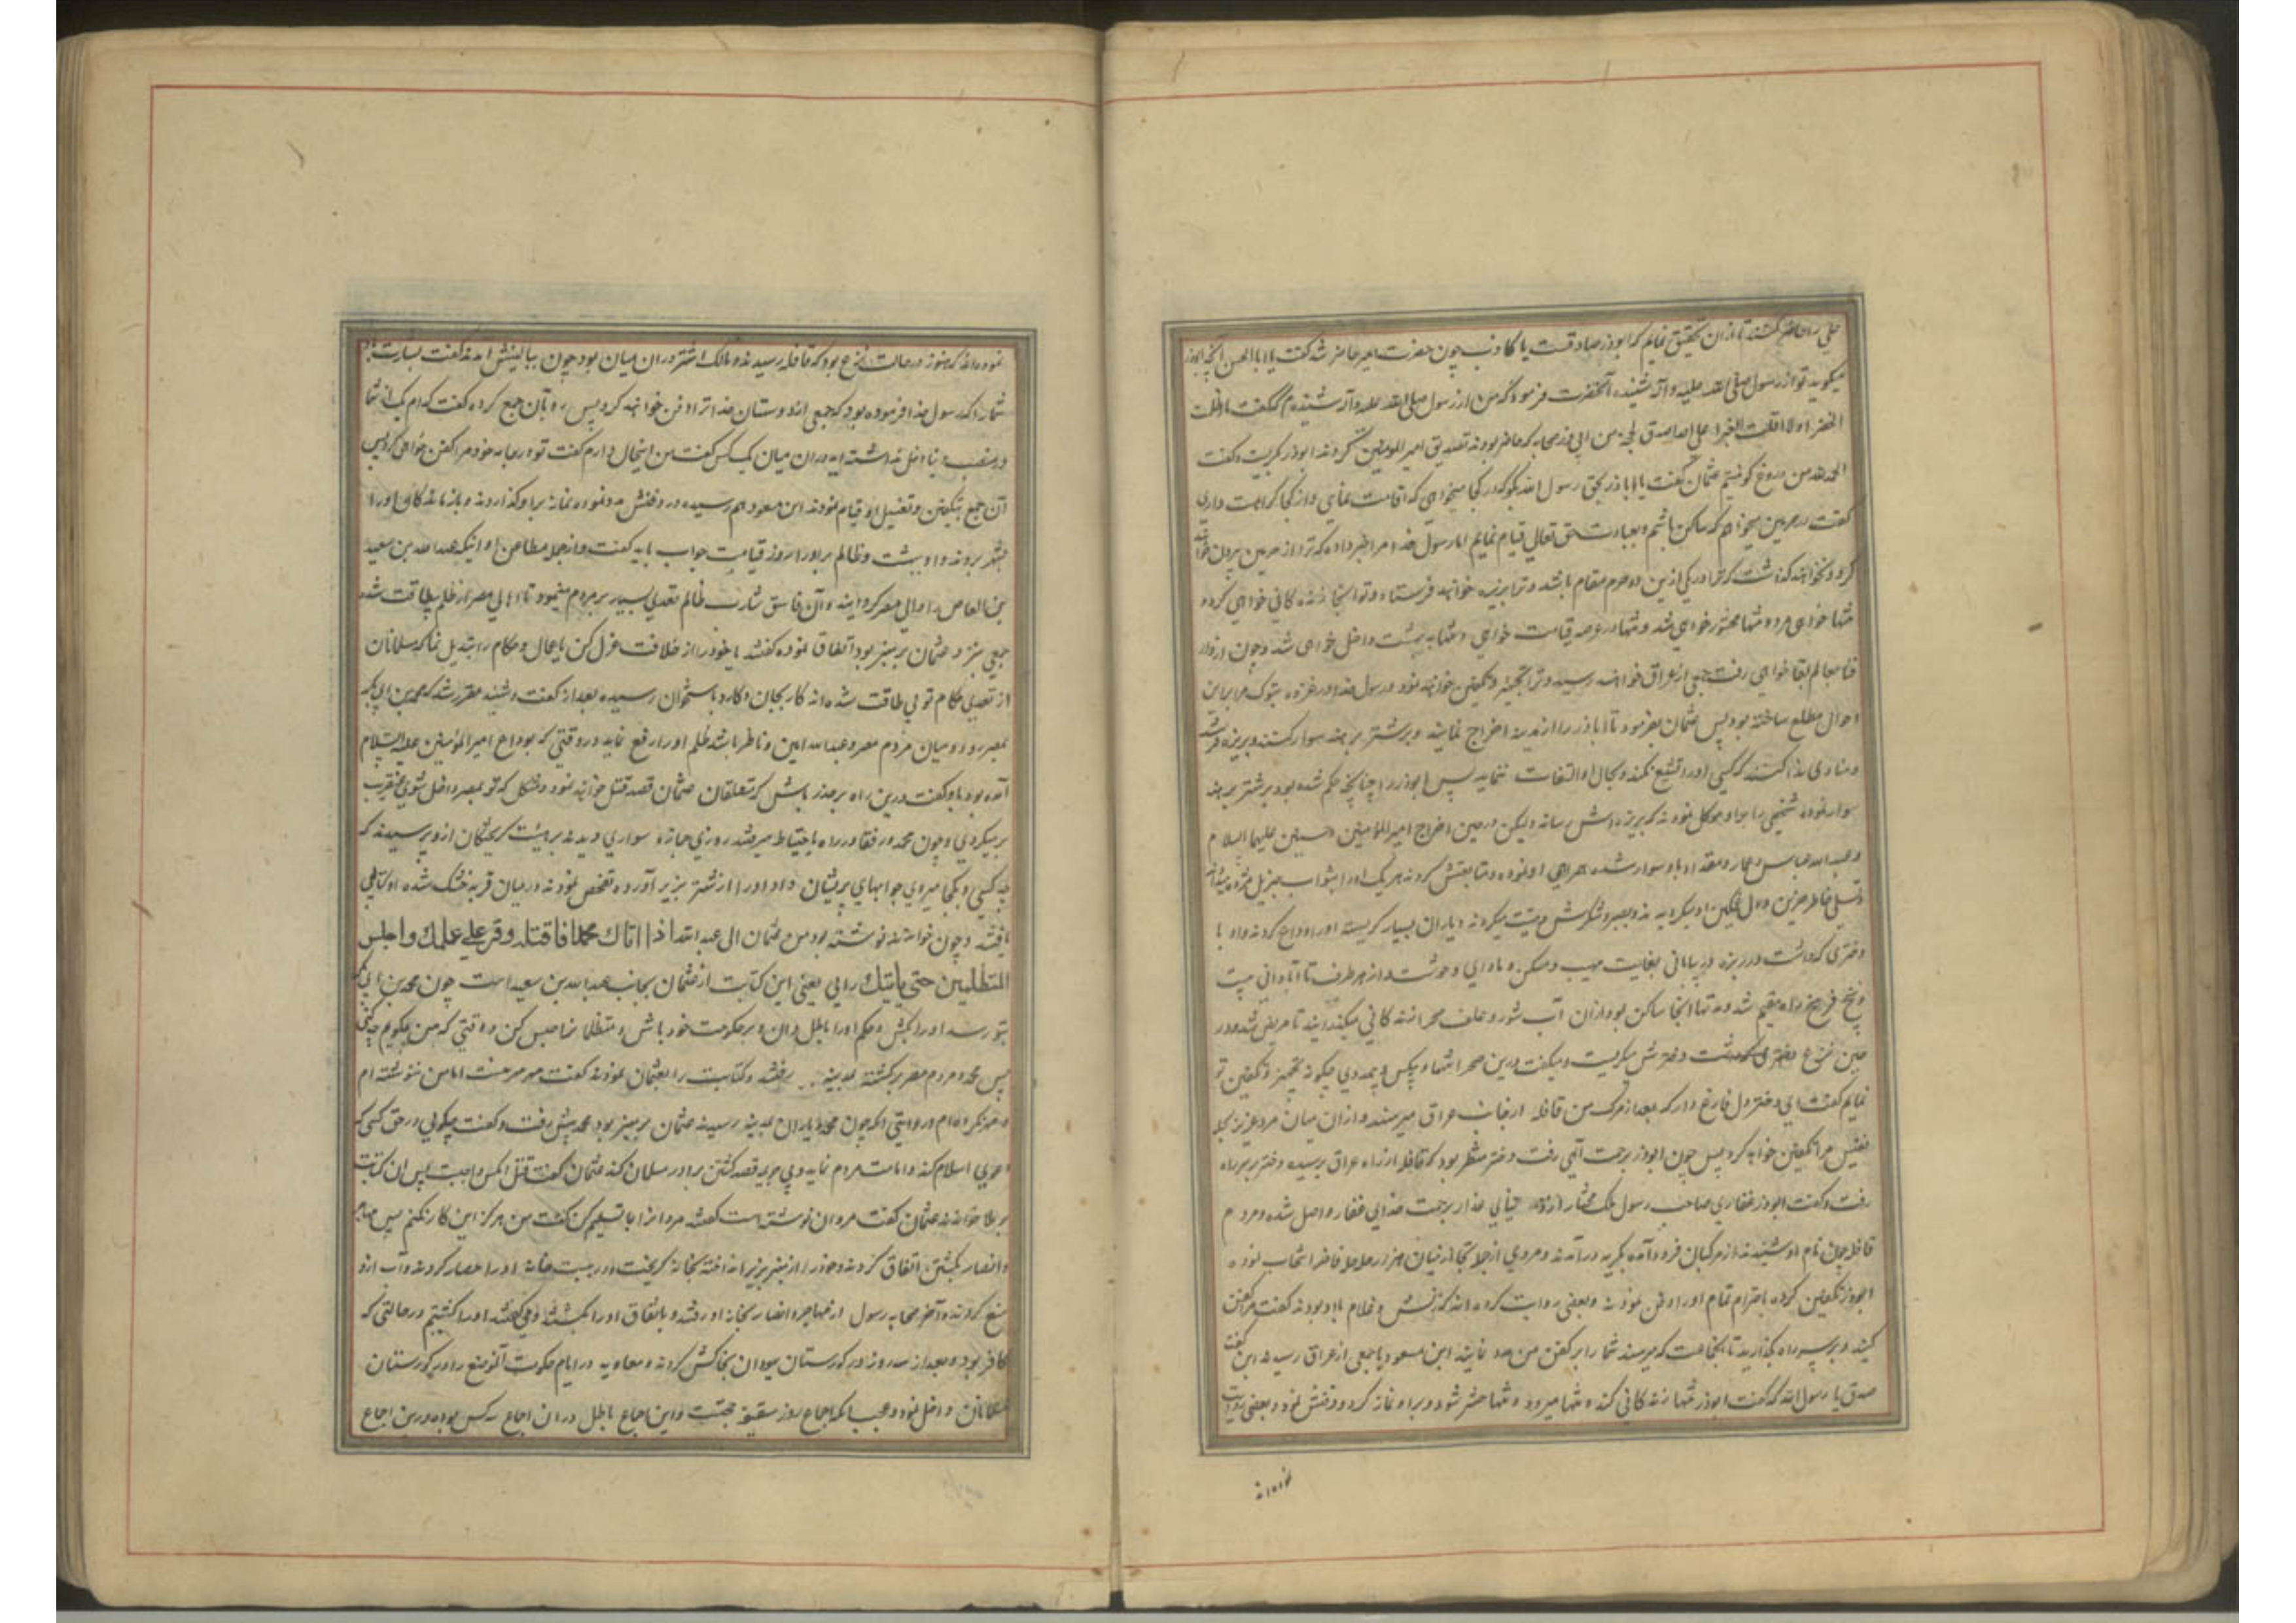 علی را حاضر کنند تا ازان تحقیق نمایم که ابوذر صادقست یا کاذب چون حضرت امیر حاضر شد گفت یا ابا الحسن آنچه ابوذر
میگوید تو از رسول صلی الله علیه وآله شنیده آنحضرت فرمود که من از رسول صلی الله علیه وآله شنیده‌ام که گفت ما اظلت
الخضراء ولا اقلت الغبراء علی احد اصدق لهجة من ابی ذر صحابه که حاضر بودند تصدیق امیر المومنین کردند ابوذر بگریست و گفت
الحمد لله من دروغ گو نیستم عثمان گفت یا اباذر بحق رسول الله بگو که در کجا میخواهی که اقامت نمایی و از کجا کراهت داری
گفت در حرمین میخواهم که ساکن باشم و بعبادت حق تعالی قیام نمایم اما رسول خدا مرا خبر داده که ترا از حرمین بیرون خواهند
کرد و نخواهند گذاشت که ترا در یکی ازین دو حرم مقام باشد و ترا بربذه خواهند فرستاد و تو آنجا زنده کانی خواهی کرد و
تنها خواهی مرد و تنها محشور خواهی شد و تنها در عرصه قیامت خواهی و تنها به بهشت داخل خواهی شد و چون از دار
فنا بعالم بقا خواهی رفت جمعی از عراق خواهند رسید و ترا تجهیز و تکفین خواهند نمود و رسول خدا در غزوه تبوک مرا براین
احوال مطلع ساخته بود پس عثمان بفرمود تا اباذر را از مدینه اخراج نمایند و بر شتر برهنه سوار کنند و بربذه فرستند
و منادی ندا کنند که کسی او را تشییع نکند و بحال او التفات ننماید پس ابوذر را چنانچه حکم شده بود بر شتر برهنه
سوار نموده شخصی را بر او موکل نمودند که بربذه اش رساند ولیکن در حین اخراج امیر المومنین و حسنین علیهما السلام
و عبد الله عباس و عمار و مقداد با او سوار شده همراهی او نموده و متابعتش کردند هر یک او را بثواب جزیل مژده میدادند
و تسلی خاطر حزین و دل غمگین او میکردند و بصبر و شکرش وصیت میکردند و یاران بسیار گریسته او را وداع کردند و او با
دختری که داشت در ربذه در بیابانی بغایت مهیب و مسکن و ماوای وحوش و از هر طرف تا آبادانی بیست
و پنج فرسخ راه مقیم شد و مدتها آنجا ساکن بود و ازان آب شور و علف صحرا زنده کانی میگذرانید تا مریض شد و در
حین نزع دختری که داشت دخترش میگریست و میگفت درین صحرا تنها و بیکس و بیمددی چگونه تجهیز و تکفین تو
نمایم گفت ای دختر دل فارغ دار که بعد از مرگ من قافله از جانب عراق میرسند و ازان میان مرد عزیز بجامه
نفیس مرا تکفین خواهد کرد پس چون ابوذر برحمت آلهی رفت دختر منتظر بود که قافله از راه عراق برسیده دختر بر سر راه
رفت و گفت ابوذر غفاری صاحب رسول ملک مختار از دار فانی بجوار رحمت خدای غفار واصل شده مردم
قافله چون نام او شنیدند از مرکبان فرود آمده بگریه درآمدند و مردی از جمله تجار ازمیان هزار حله حله فاخر انتخاب نموده
ابوذر را تکفین کرده باحترام تمام او را دفن نمودند و بعضی روایت کرده اند که زنش و غلام با او بودند گفت مرا کفن
کنید و بر سر راه بگذارید تا بجماعت که میرسند شما را بر کفن من مدد نمایند ابن مسعود با جمعی از عراق رسیدند ابن مسعود گفت
صدق یا رسول الله که گفت ابوذر تنها زنده کانی کند و تنها میرود و تنها حشر شود و بر او نماز کرد و دفنش نمود و بعضی روایت
نموده‌اند
نموده اند که هنوز در حالت نزع بود که قافله رسیدند و مالک اشتر دران میان بود چون ببالینش آمدند گفت بشارت باد
شما را که رسول خدا فرموده بود که جمعی از دوستان خدا ترا دفن خواهند کرد پس رو بآن جمع کرده گفت کدام یک از شما
در منصب دنیا دخل نداشته اید دران میان یک کس گفت من اینحال دارم گفت تو در جامه خود مرا کفن خواهی کرد پس
آن جمع بتکفین و تغسیل او قیام نمودند ابن مسعود هم رسیده در دفنش مدد نموده نماز بر او گذاردند و بازماند کان او را
بشهر بردند و او ببهشت و ظالم بر او را روز قیامت جواب باید گفت و از جمله مطاعن او اینکه عبد الله بن سعید
بن العاص را والی مصر گردانید و آن فاسق شارب ظالم تعدی بسیار بر مردم مینمود تا اهالی مصر از ظلم بیطاقت شده
جمعی بنزد عثمان بر منبر بود اتفاق نموده گفتند یا خود را از خلافت عزل کن یا عمال و حکام را تبدیل نما که مسلمانان
از تعدی حکام تو بی طاقت شده اند کار بجان و کارد باستخوان رسیده بعد از گفت و شنید مقرر شد که محمد بن ابی بکر
بمصر رود و میان مردم مصر و عبد الله امین و ناظر باشد ظلم او را رفع نماید در وقتی که بوداع امیر المومنین علیه السلام
آمده بود با او گفت درین راه بر حذر باش که متعلقان عثمان قصد قتل خواهند نمود و مشکل که تو بمصر داخل شوی عنقریب
بر میگردی و چون محمد و رفقا در راه باحتیاط میرفتند روزی جمازه سواری دیدند بر هیئت گریختگان ازو پرسیدند که
چه کسی و بکجا میروی جوابهای پریشان داد او را از شتر بزیر آورده تفحص نمودند در میان قربه خشک شده او کتابتی
یافتند و چون خواندند نوشته بود من عثمان الی عبد الله اذا اتاك محمد فاقتله وقر علی عملك واجلس
المتظلمین حتی یاتیك رایی یعنی این کتابت از عثمان بجانب عبد الله بن سعید است چون محمد بن ابی بکر
بتو رسد او را بکش و حکم او را باطل دان و بر حکومت خود باش و متظلمان را حبس کن تا وقتی که من بگویم چه کنی
پس محمد و مردم مصر برگشته بمدینه رفتند و کتابت را بعثمان نمودند گفت مهر مهر منست اما من ننوشته ام
و مهر نکرده‌ام در روایتی آنکه چون محمد و یاران بمدینه رسیدند عثمان بر منبر بود محمد پیش رفت و گفت چگویی در حق کسی که
دعوی اسلام کند و امامت مردم نماید و بی موجبی قصد کشتن برادر مسلمان کند عثمان گفت قتل آنکس واجبست پس آن کتابت
بر ملا خواندند عثمان گفت مروان نوشته است گفتند مروان را بما تسلیم کن گفت من هرگز این کار نکنم پس مهاجر
و انصار بکشتن اتفاق کردند و خود را از منبر بزیر انداخته بخانه گریخت و در بیست خانه او را حصار کردند و آب ازو
منع کردند و آخر صحابه رسول از مهاجر و انصار بخانه او رفتند و باتفاق او را بکشتند و می گفتند او را کشتیم در حالتی که
کافر بود و بعد از سه روز در گورستان یهودان بخاکش کردند و معاویه در ایام حکومت آن موضع را در گورستان
مسلمانان داخل نمود و عجب آنکه اجماع روز سقیفه حجتست و این اجماع باطل دران اجماع سه کس بوده و درین اجماع